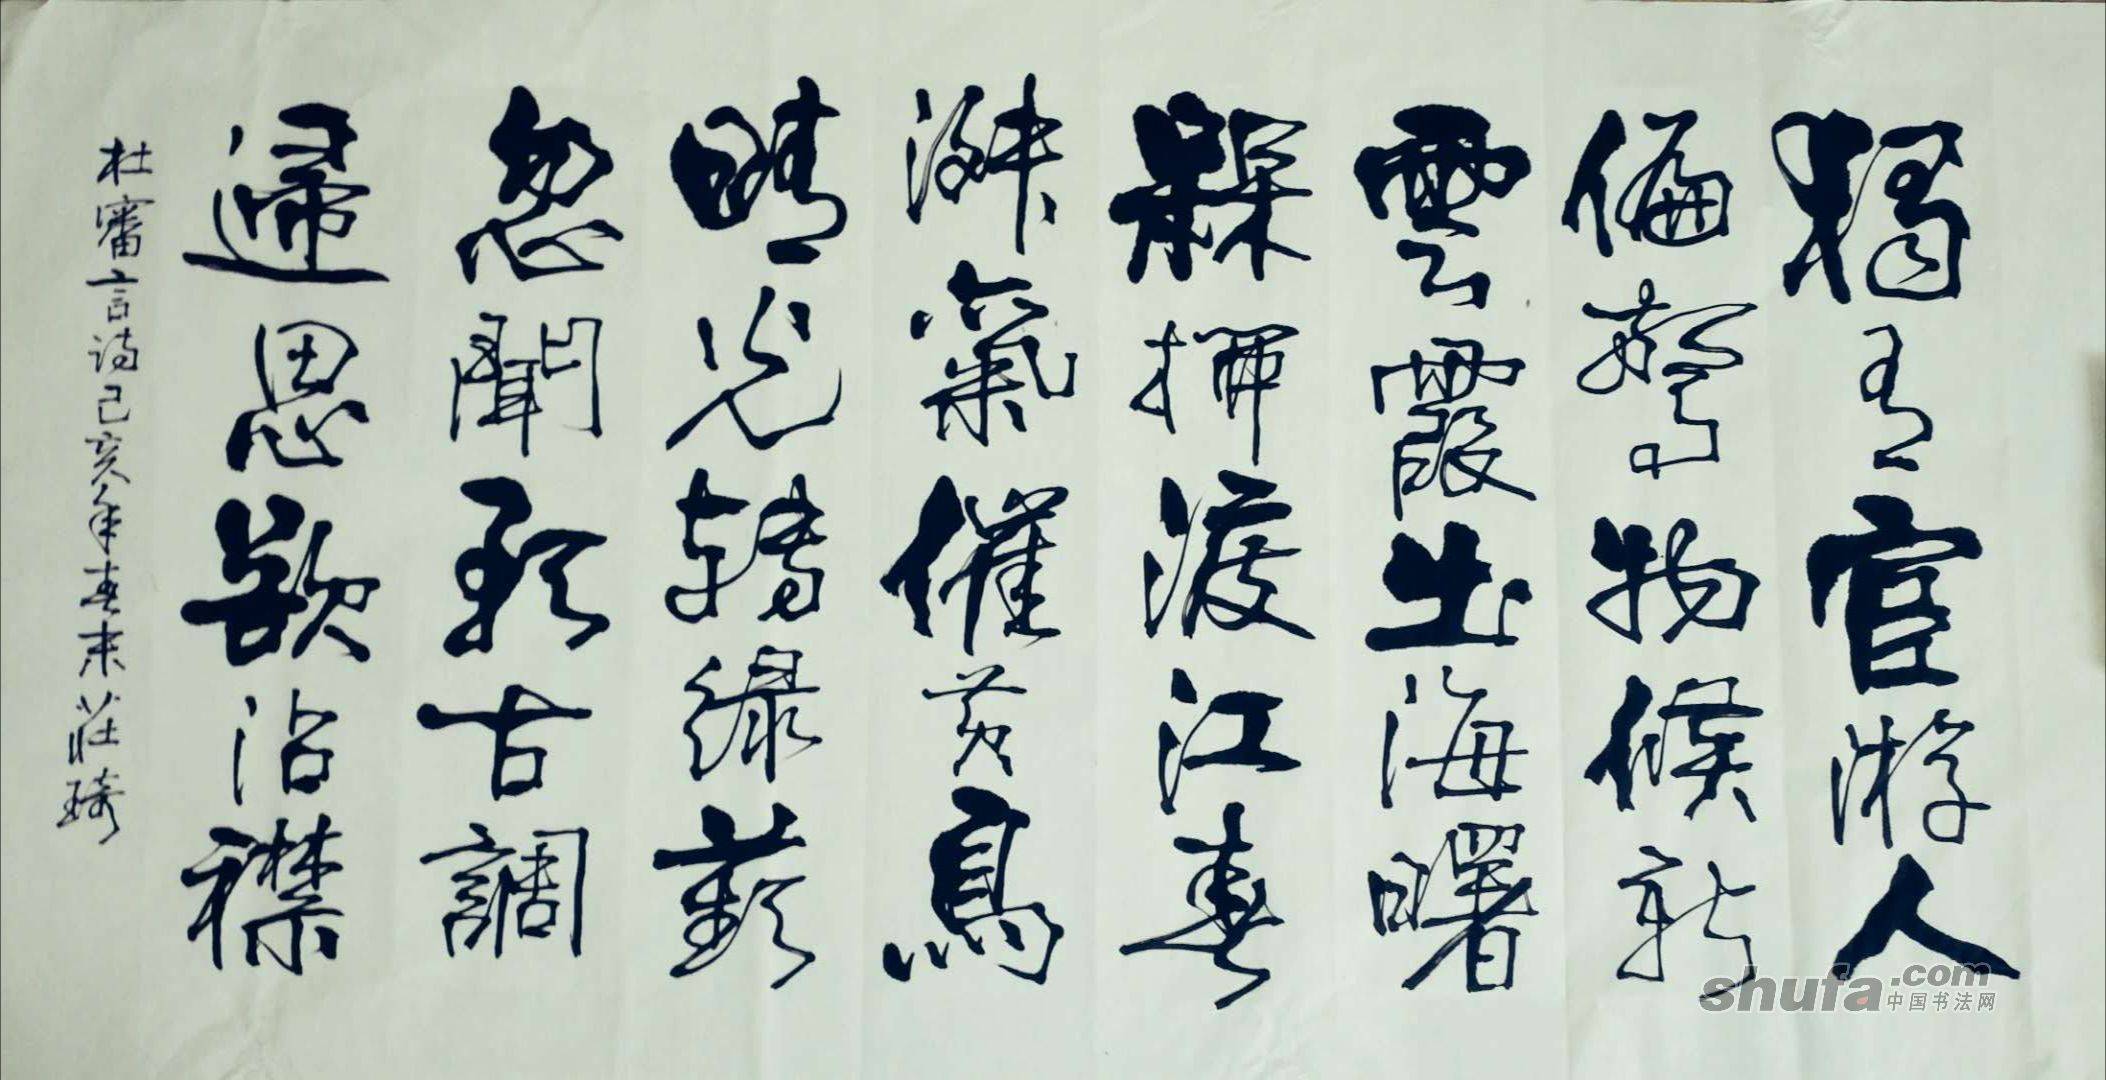 獨有宦游人
偏驚物候新
雲霞出海曙
槑柳渡江春
淑氣催黄鳥
晴光轉緑蘋
忽聞歌古調
歸思欲沾襟
杜審言詩己亥年春末莊琦
shufa.com
中国书法网